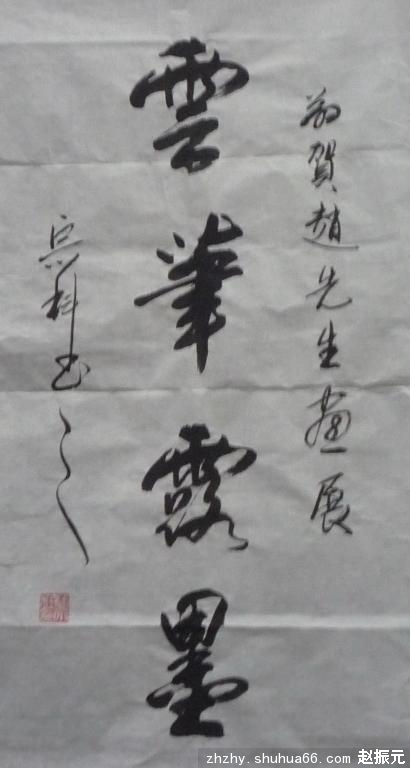 敬賀趙先生畫展
雲筆露墨
科書之
zhzhy.shuhua66.com 赵振元